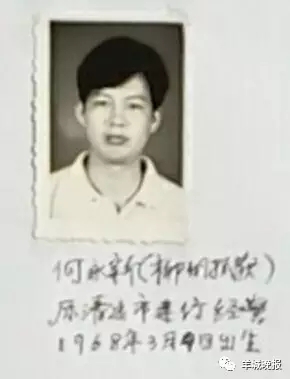 何永新(柳州抓获)
原潜逃市建行经营
1968年3月9日出生
羊城晚报